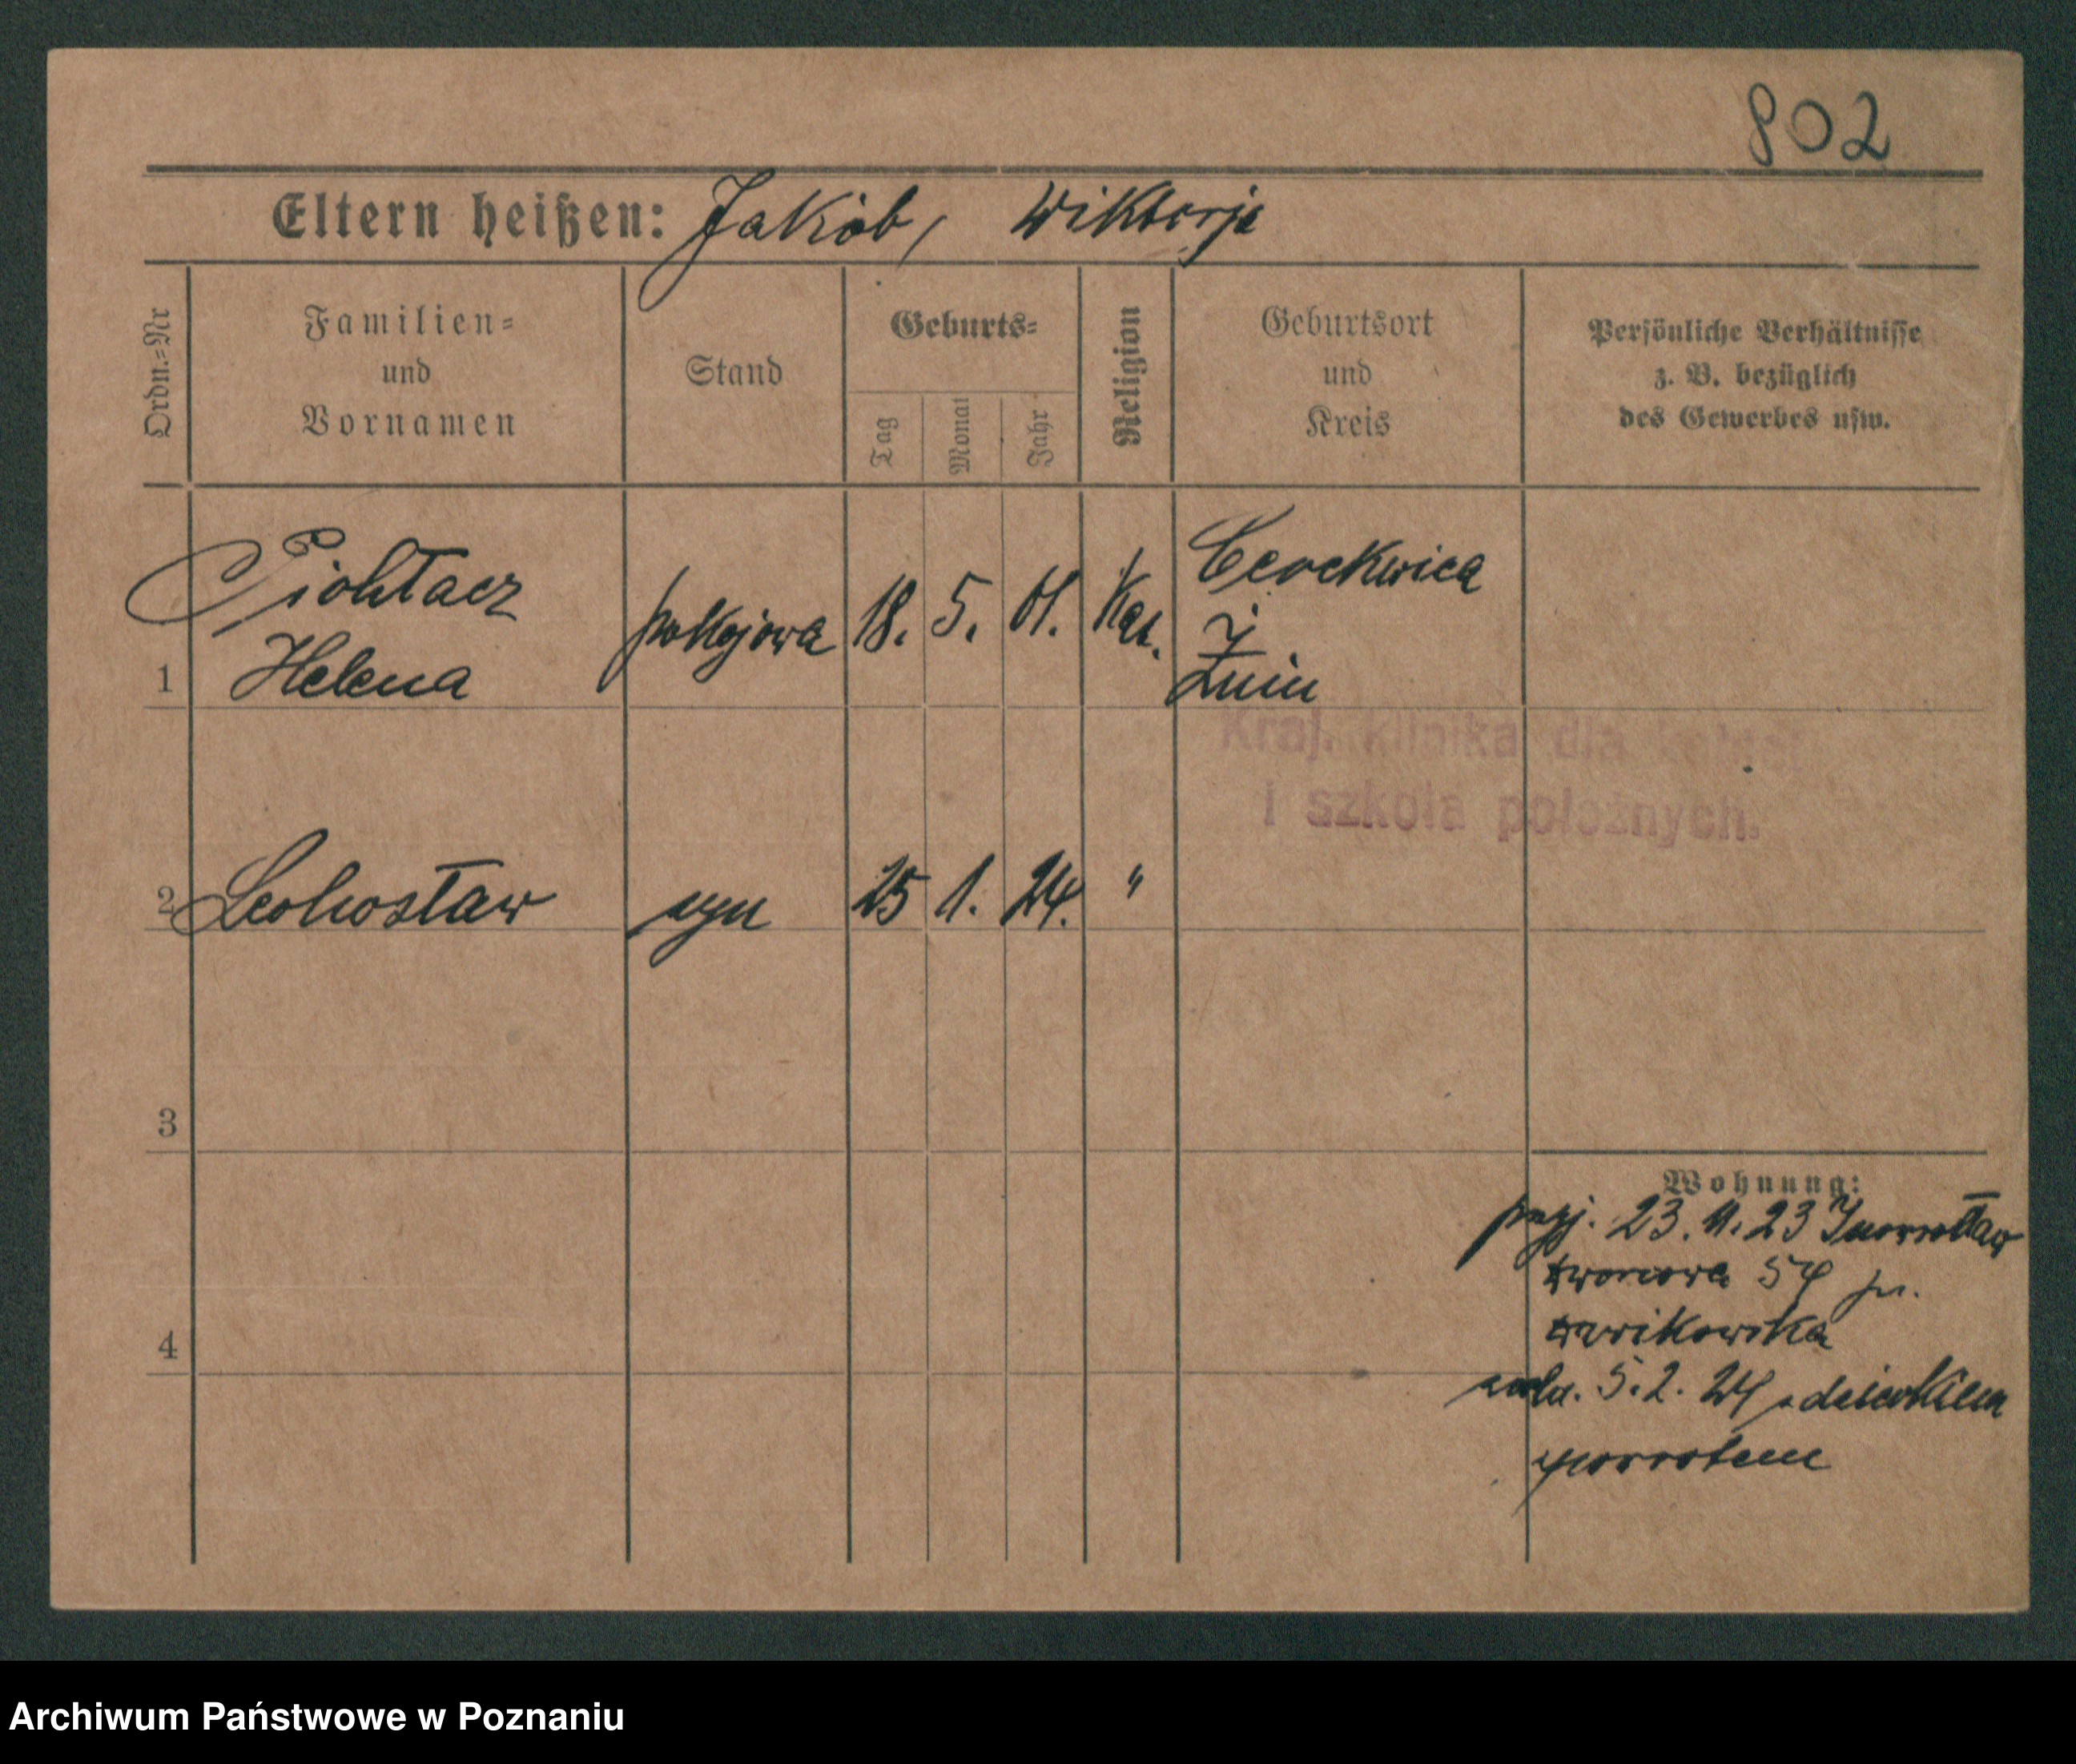 802
Eltern heißen: Jakób, Wiktorja
Ordn.-Nr
Familien-
und
Vornamen
Stand
Geburts-
Tag
Monat
Jahr
Religion
Geburtsort
und
Kreis
Persönliche Verhältnisse
z. B. bezüglich
des Gewerbes usw.
1
Helena
pokojowa
18. 5. 01. Kat.
Cerekwica
Żnin
Kraj. klinika dla kobiet
i szkoła położnych.
2
Lechosław
syn
25 1. 24. "
3
4
Wohnung:
przyj. 23. 11. 23 Inowrocław
Dworcowa 54 pr.
5. 2. 24 z dzieckiem
zpowrotem
Archiwum Państwowe w Poznaniu